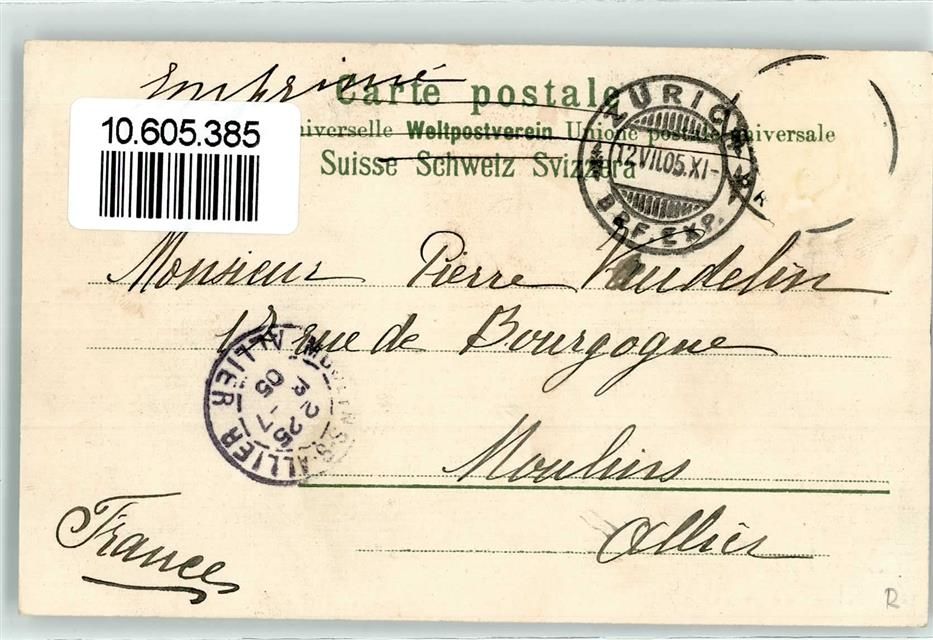 Imprimé
Carte postale
10.605.385
niverselle Weltpostverein Unione postale universale
Suisse Schweiz Svizzera
ZÜRICH
12.VII.05.XI-
BRF. EXP.
Monsieur Pierre Vaudelin
17 rue de Bourgogne
MOULINS-S-ALLIER
ALLIER
05
Moulins
Allier
France
R